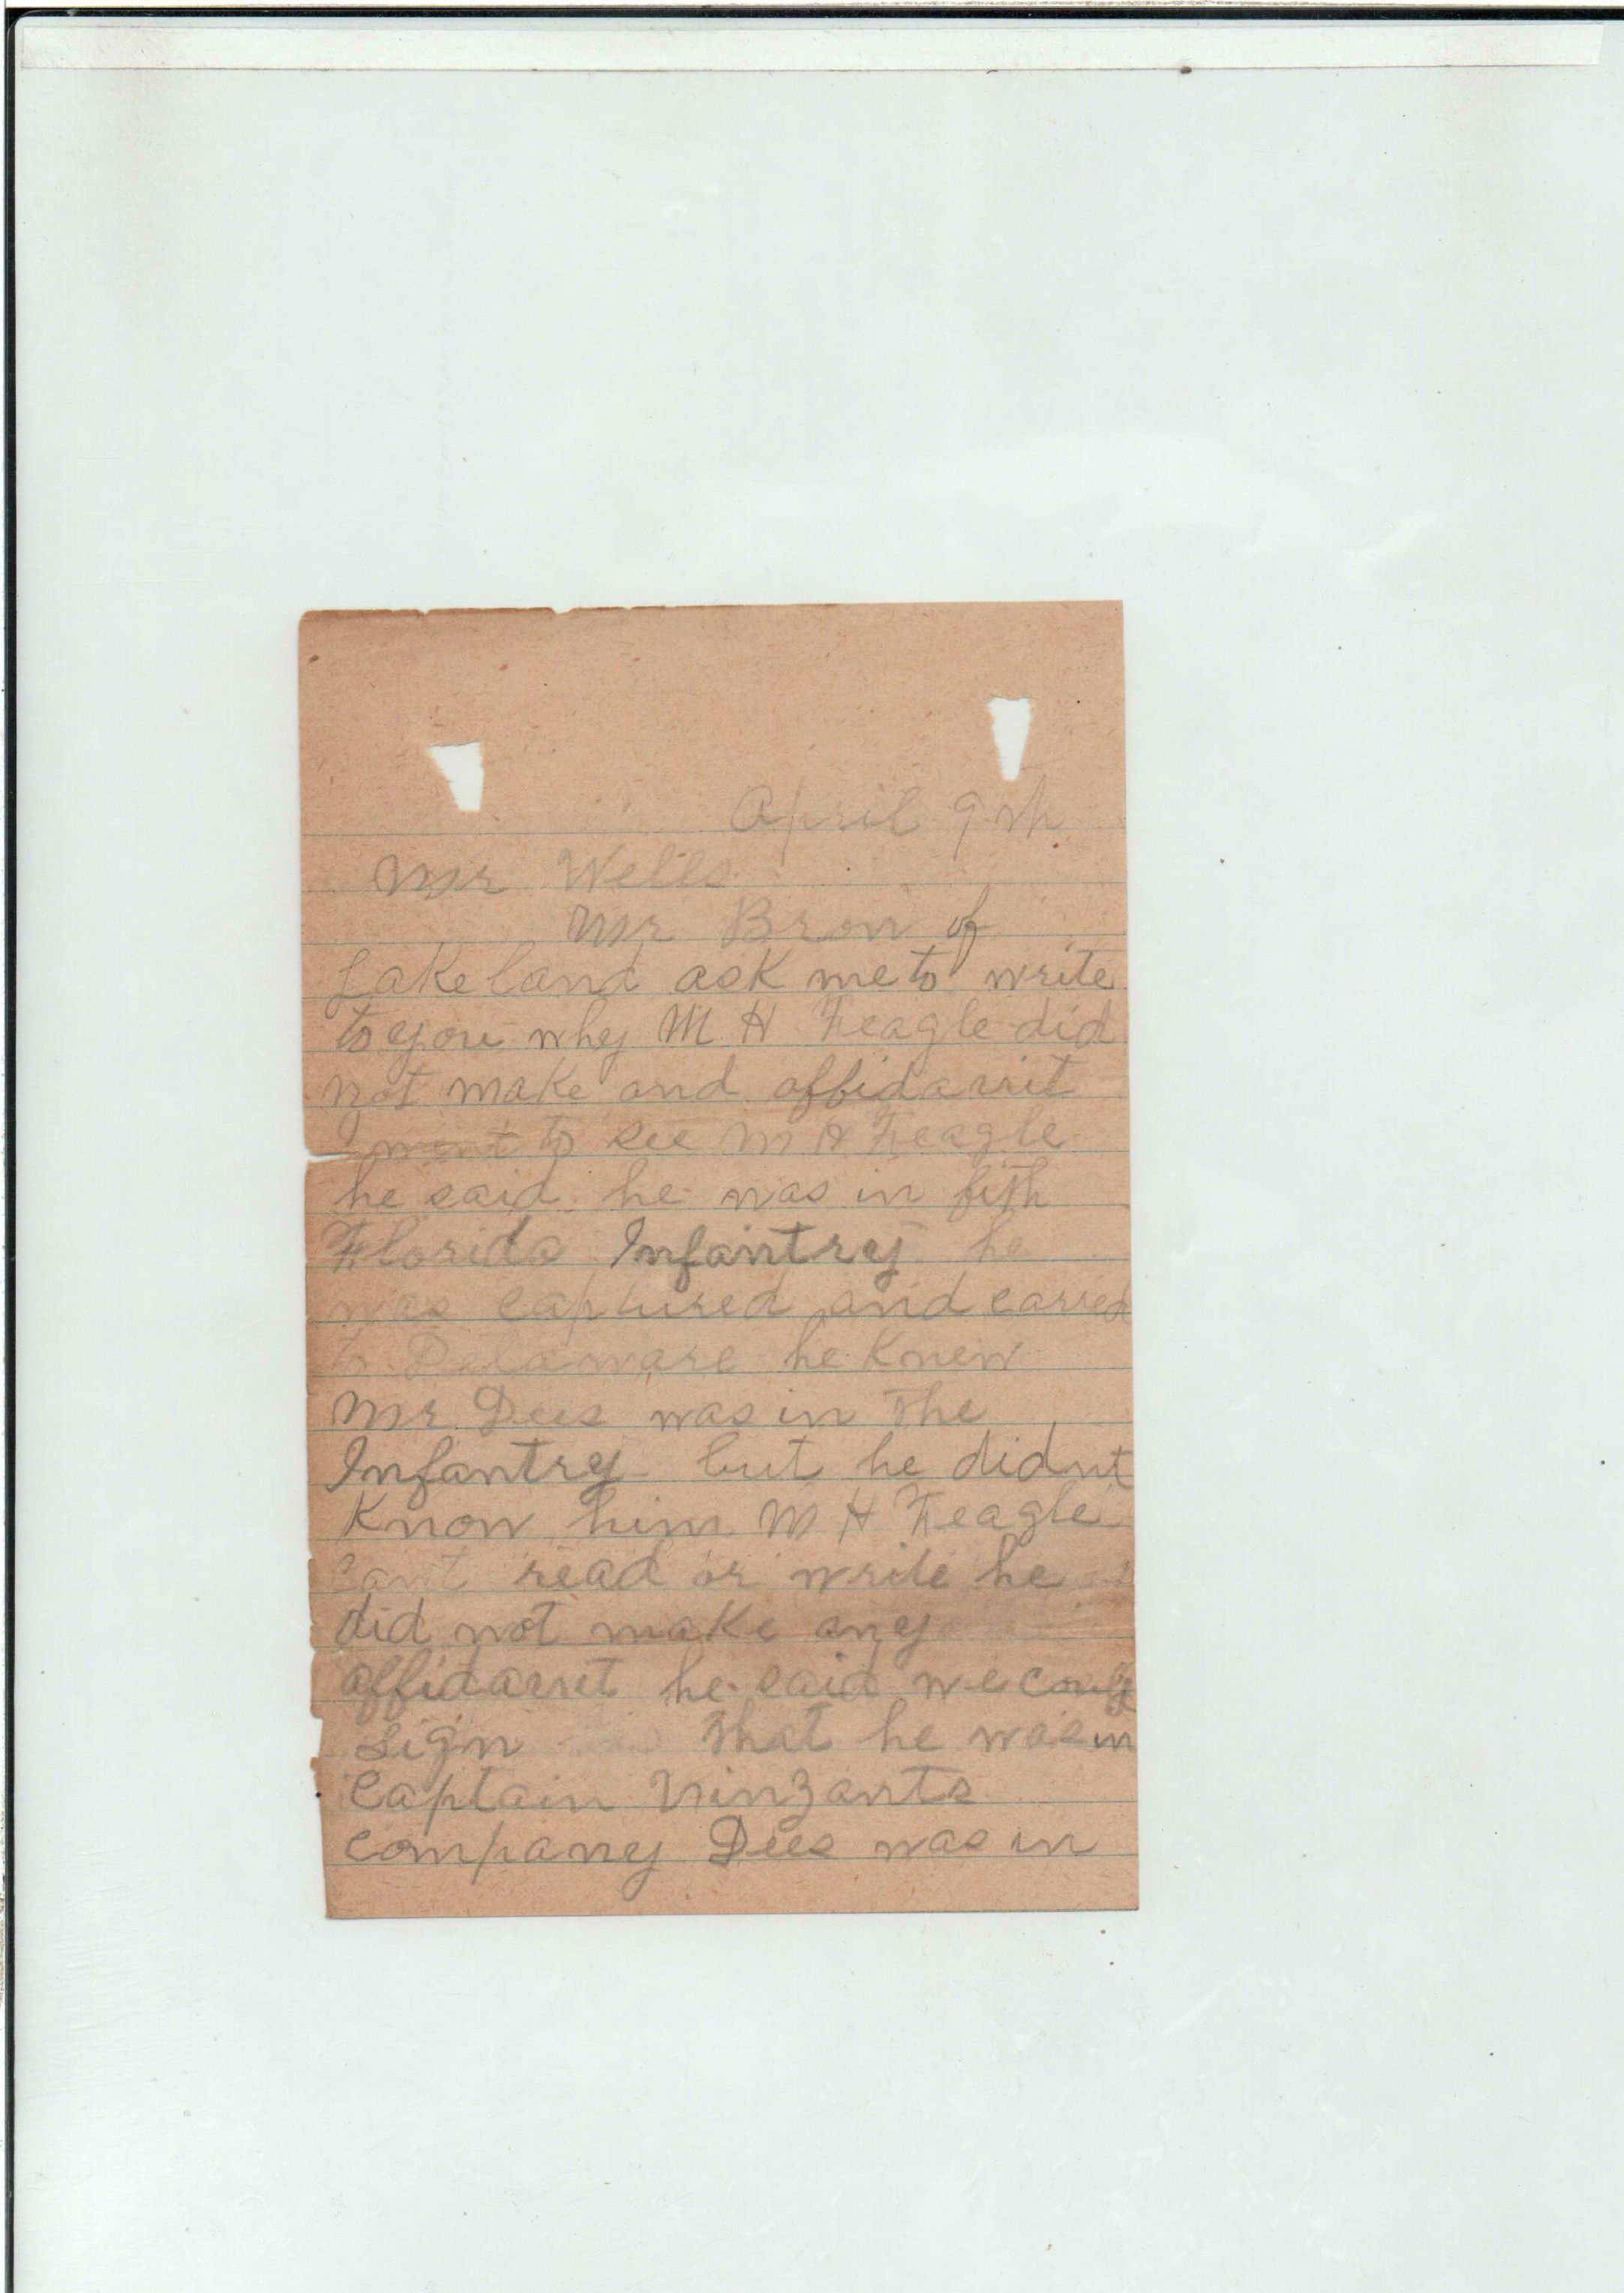 April 9th
Mr Wells
Mr Bron of
Lakeland ask me to write
to you why M H Feagle did
not make and affidavit
went to see M H Feagle
he said he was in fith
Florida Infantry he
was captured and carred
to Delaware he knew
Mr. Dees was in The
Infantry but he didnt
Know him M H Feagle
cant read or write he
did not make any
affidavit he said we could
sign that he was in
Captain Vinzants
company Dees was in